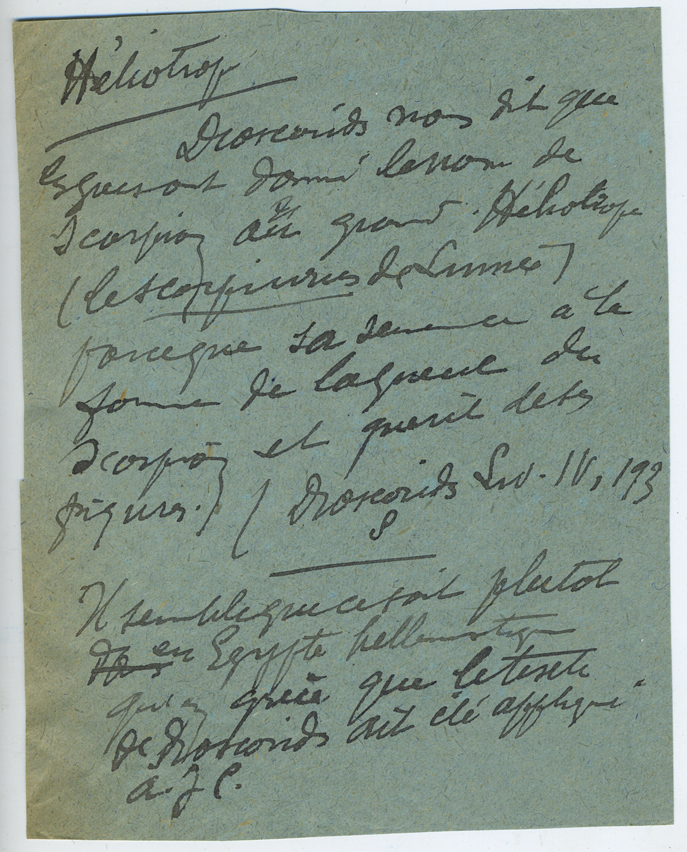 Héliotrop
Dioscorids nous dit que
les grecs ont donné le nom de
scorpion au grand Héliotrope
(le scorpiurus de Linnée)
parceque sa semence a la
forme de la queue du
scorpion et guerit de ses
piqures.) (Dioscorids Liv. IV, 193
Il semble que ce soit plutot
en Egypte hellenistique
qu'en grèce que le texte
de Dioscorids ait été appliqué